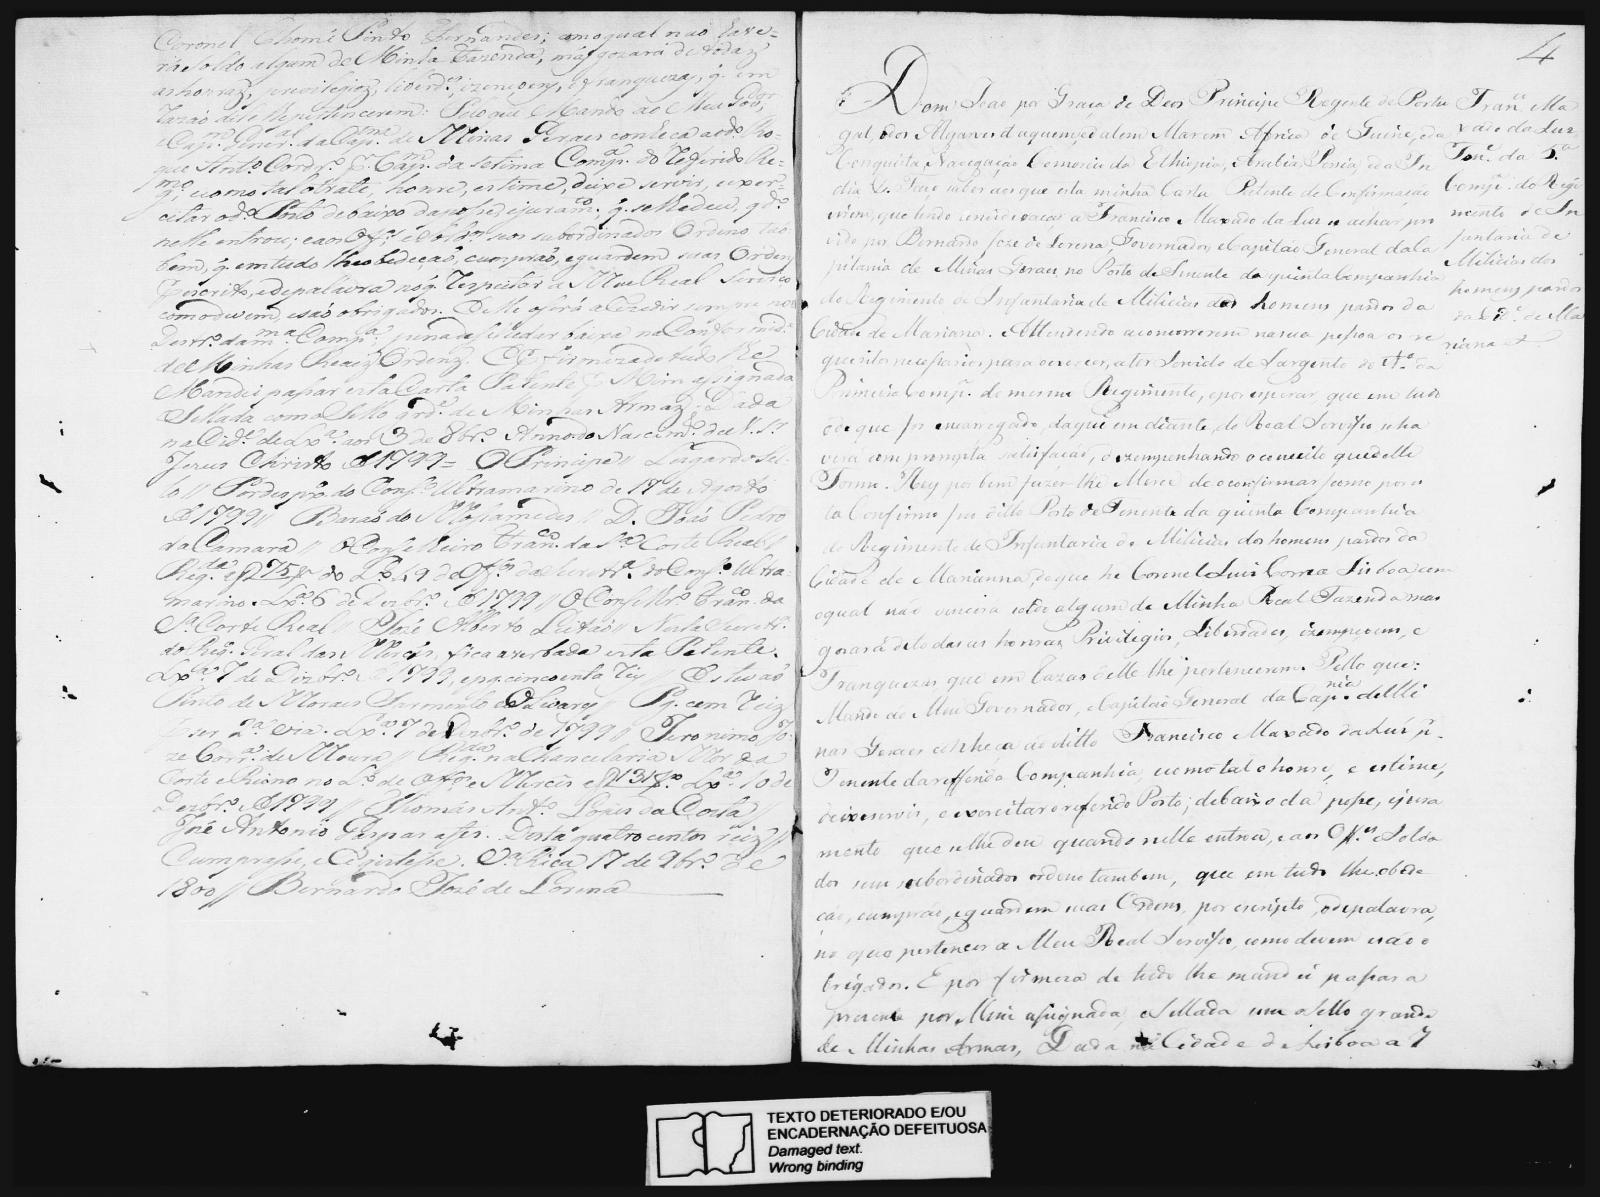 Coronel Thomé Pinto Fernandes; com o qual não have-
rá soldo algum de Minha Fazenda, mas gozará de todas
as honras, previlegios, liberd.es, izençoens, e franquezas, q. em
razão delle lhe pertencerem: Pelo que Mando ao Meu Gov.dor,
e Cap.m Gener.al da Cap.nia de Minas Geraes conheça ao d.o Ro-
que Ant.o Cordr.o p.r Cap.m da setima Comp.a do referido Re-
g.mo, e como tal o trate, honre, estime, deixe servir, e exer-
citar o d.o Posto debaixo da posse, e juram.to q. se lhe deu, q.do
nelle entrou; e aos Off.es e Sold.os seus subordinados Ordeno tao
bem, q. em tudo lhe obedeção, cumprão, e guardem suas Ordens
p.r escrito, e de palavra no q. respeitar a Meu Real Serviço
como devem, e são obrigados. Elle será a rezidir sempre no
Destr.o da m.ma Comp.a, pena de se lhe dar baixa na Conformid.e
de Minhas Reaes Ordens. E p.r firmeza de tudo lhe
Mandei passar esta Carta Patente p.r Mim assignada
e Sellada com o Sello grd.e de Minhas Armas; Dada
na Cid.e de Lx.a aos 3 de 8br.o Anno do Nascim.to de N. S.r
Jezus Christo de 1799 = O Principe // Lugar do Sel-
lo // Por desp.o do Cons.o Ultramarino de 17 de Agosto
de 1799 // Barão de Mossamedes // D. João Pedro
da Camara // O Conselheiro Fran.co da S.a Corte Real //
Reg.ta a f 275 v.o do L.o 49 de Off.os da Secretr.a do Cons.o Ultra-
marino. Lx.a 6 de Dezbr.o de 1799 // O Conselhr.o Fran.co da
S.a Corte Real // José Alberto Leitão // Nesta Secretr.a
do Reg.o Geral das Mercês, fica averbada esta Patente.
Lx.a 7 de Dezbr.o de 1799, e pg. cincoenta reis // Estevão
Pinto de Moraes Sarmento e // Pg. cem reis
p.r ser 2.a via. Lx.a 7 de Dezbr.o de 1799 // Jeronimo Jo-
ze Corr.a de Moura // Reg.ta na Chancelaria Mor da
Corte e Reino no L.o de Off.os e Mercês a f 131 v.o Lx.a 10 de
Dezbr.o de 1799 // Thomás Ant.o Lopes da Costa //
José Antonio Gaspar a fes. Desta quatro centos reis //
Cumprasse, e Registesse. V.a Rica 17 de 9br.o de
1800 // Bernardo José de Lorena
4
Dom João por Graça de Deos Principe Regente de Portu
gal, e dos Algarves daquem, e dalem Mar em Africa de Guiné, e da
Conquista, Navegação Comercio da Ethiopia, Arabia, Persia, e da In
dia &. Faço saber aos que esta minha Carta Patente de Confirmação
virem, que tendo concideração a Francisco Maxado da Luz se achar pro
vido por Bernardo Joze de Lorena, Governador, e Capitão General da Ca
pitania de Minas Geraes, no Posto de Tenente da quinta Companhia
do Regimento de Infantaria de Milicias dos homens pardos da
Cidade de Mariana. Attendendo a concorrerem na sua pessoa os re
quisitos necessarios para o exercer, a ter servido de Sargento do N.o da
Primeira Comp.a do mesmo Regimento, e por esperar, que em tudo
o de que for encarregado, daqui em diante, do Real Serviço se ha
verá com prompta satisfação, dezempenhando o conceito que delle
Formo. Hey por bem fazer-lhe Merce de o confirmar (como por es
ta Confirmo) no ditto Posto de Tenente da quinta Companhia
do Regimento de Infantaria de Milicias dos homens pardos da
Cidade de Marianna, de que he Coronel Luis Correa Lisboa, com
o qual não vencerá soldo algum da Minha Real Fazenda mas
gozará de todas as honras, Privilegios, Liberdades, izempçoens, e
Franquezas que em razão delle lhe pertencerem. Pello que:
Mando ao Meu Governador, e Capitão General da Cap.nia de Mi
nas Geraes conheça ao ditto Francisco Maxado da Luz p.r
Tenente da refferida Companhia, e como tal o honre, e estime,
deixe servir, e exercitar o referido Posto; debaixo da posse, e jura
mento que se lhe deu quando nelle entrou, e aos Off.es Solda
dos seus subordinados ordeno tambem, que em tudo lhe obede
ção, cumprão, e guardem suas Ordens, por escripto, e de palavra,
no que pertencer a Meu Real Serviço, como devem e são o
brigados. E por firmeza de tudo lhe mandei passar a
prezente por Mim assignada, e Sellada com o Sello grande
de Minhas Armas, Dada na Cidade de Lisboa a 7
Fran.co Ma
xado da Luz,
Ten.e da 5.a
Comp.a do Regi
mento de In
fantaria de
Milicias dos
homens pardos
da Cid.e de Ma
riana &.
TEXTO DETERIORADO E/OU
ENCADERNAÇÃO DEFEITUOSA
Damaged text.
Wrong binding